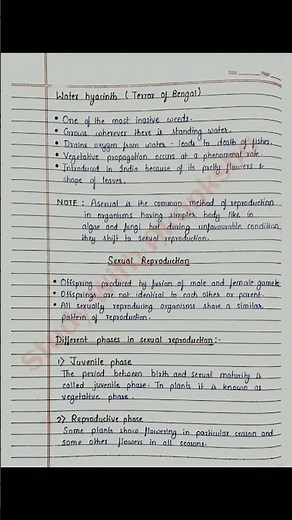 Date _____ Page ____
Water hyacinth ( Terror of Bengal)
• One of the most invasive weeds.
• Grows wherever there is standing water.
• Drains oxygen from water - leads to death of fishes.
• Vegetative propagation occurs at a phenomenal rate
• Introduced in India because of its pretty flowers &
shape of leaves.
NOTE : Asexual is the common method of reproduction
in organisms having simpler body like in
algae and fungi but during unfavourable condition
they shift to sexual reproduction.
Sexual Reproduction
• Offspring produced by fusion of male and female gamete.
• Offsprings are not identical to each other or parent.
• All sexually reproducing organisms share a similar
pattern of reproduction.
Different phases in sexual reproduction :-
1) Juvenile phase
The period between birth and sexual maturity is
called juvenile phase. In plants it is known as
vegetative phase.
2) Reproductive phase
Some plants show flowering in particular season and
some other flowers in all seasons.